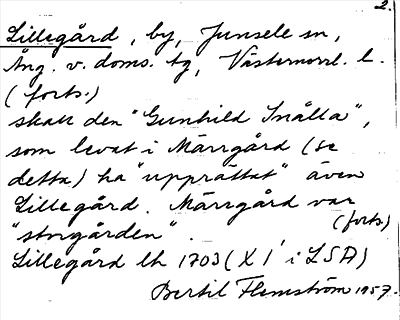 2.
Lillegård, by, Junsele sn,
Ång. v. doms. tg, Västernorrl. l.
(forts.)
skall den "Gunhild Snälla",
som levat i Märrgård (se
detta) ha "upprättat" även
Lillegård. Märrgård var
(forts)
"storgården".
Lillegård lh 1703 (XI¹ i LSA)
Bertil Flemström 1957.